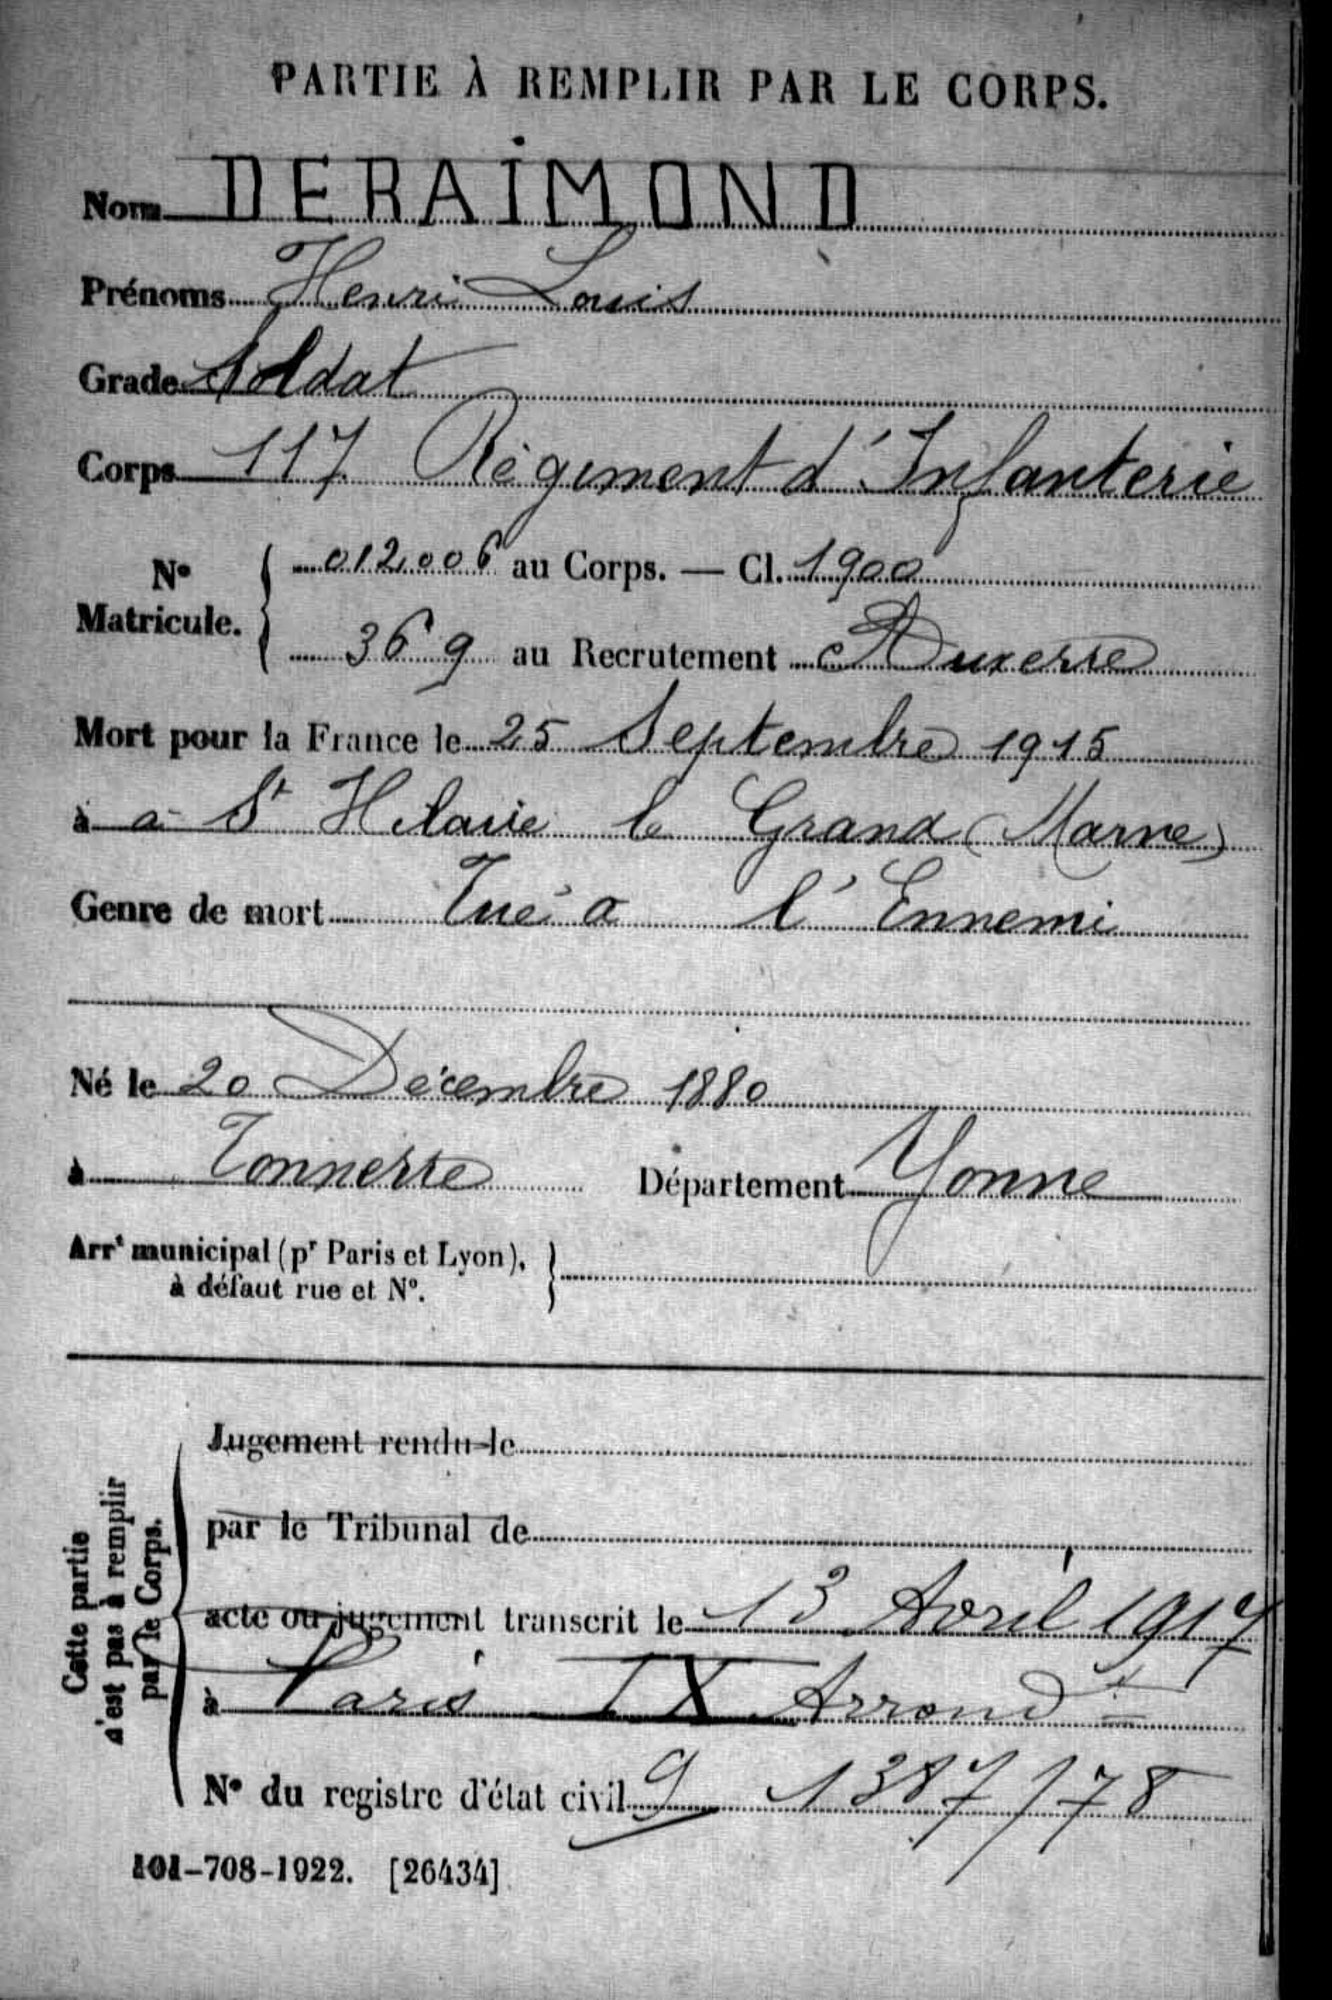 PARTIE À REMPLIR PAR LE CORPS.
Nom DERAIMOND
Prénoms Henri Louis
Grade Soldat
Corps 117 Régiment d'Infanterie
N° Matricule. 012006 au Corps. — Cl. 1900
369 au Recrutement Auxerre
Mort pour la France le 25 Septembre 1915
à a St Hilaire le Grand (Marne)
Genre de mort Tué a l'Ennemi
Né le 20 Décembre 1880
à Tonnerre Département Yonne
Arrt municipal (pr Paris et Lyon),
à défaut rue et N°.
Cette partie
n'est pas à remplir
par le Corps.
Jugement rendu le
par le Tribunal de
acte ou jugement transcrit le 13 Avril 1917
à Paris IX Arrondt
N° du registre d'état civil 9 1387/78
101-708-1922. [26434]